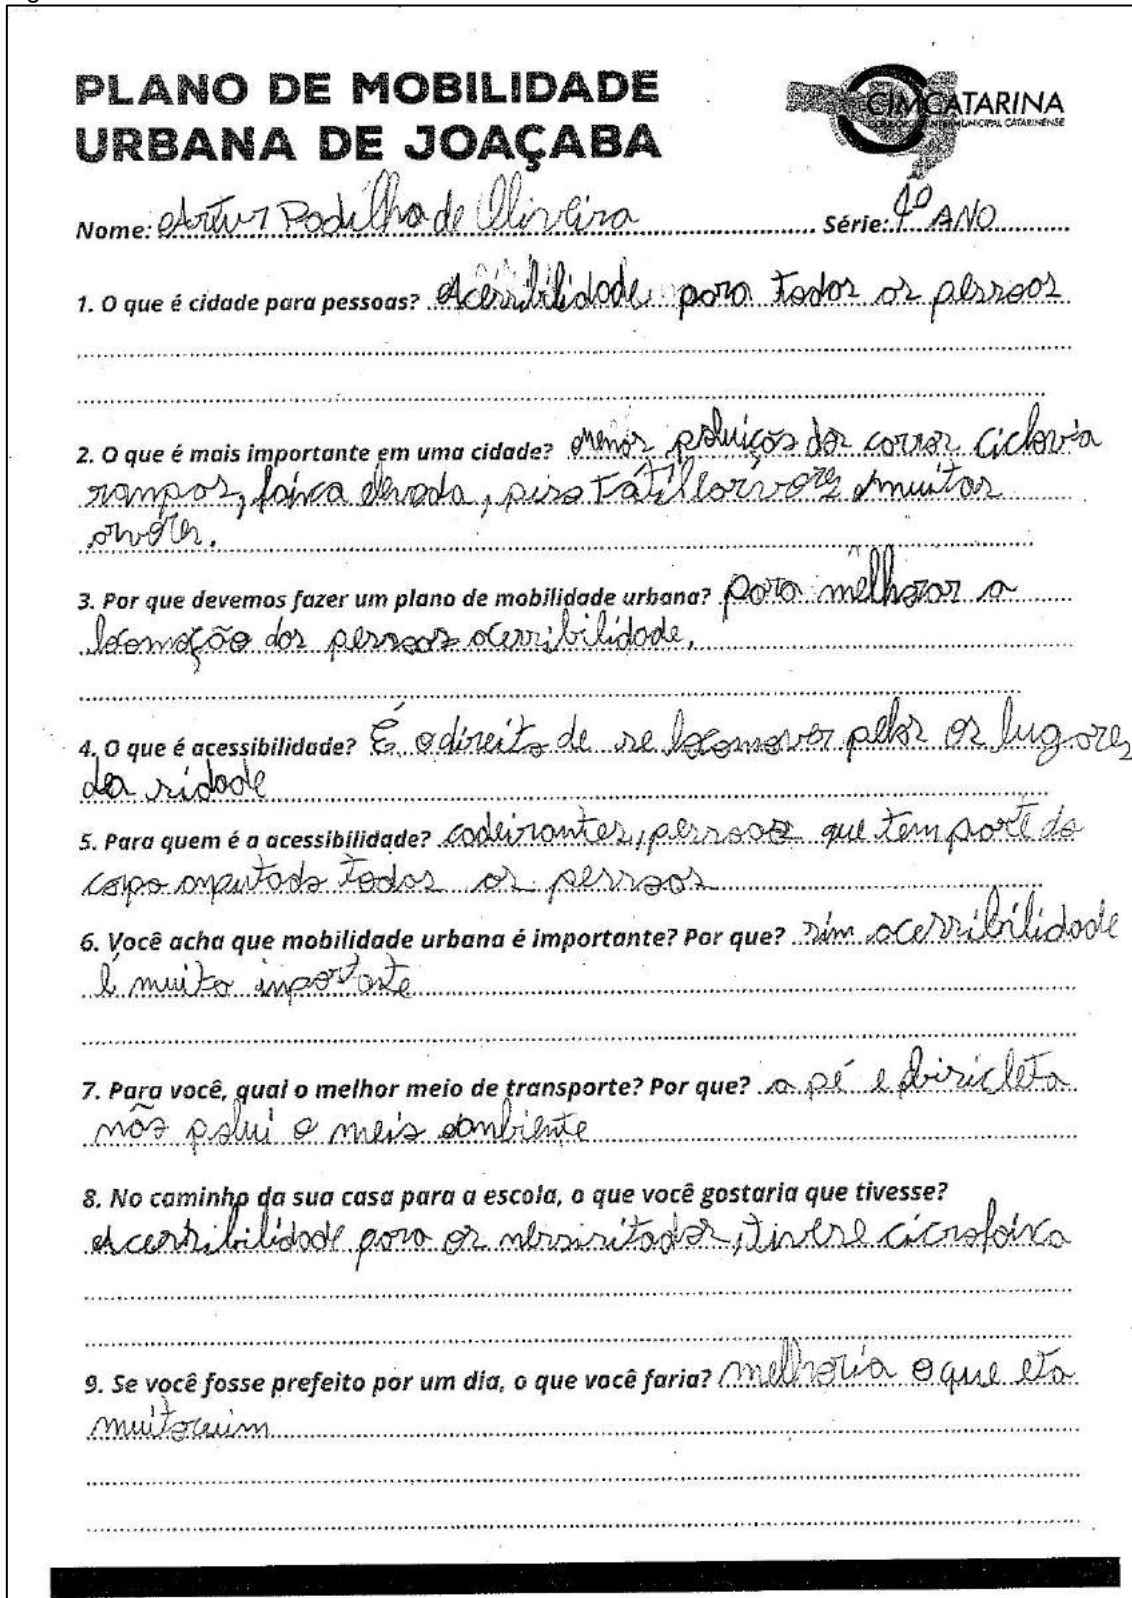 PLANO DE MOBILIDADE
URBANA DE JOAÇABA
CIMCATARINA
CONSÓRCIO INTERMUNICIPAL CATARINENSE
Nome: Artur Padilha de Oliveira Série: 4º ANO
1. O que é cidade para pessoas? Acessibilidade para todas as pessoas
2. O que é mais importante em uma cidade? menos poluição dos carros ciclovia
rampas, faixa elevada, piso tátil árvores e muitas
arvores.
3. Por que devemos fazer um plano de mobilidade urbana? para melhorar a
locomoção das pessoas acessibilidade.
4. O que é acessibilidade? É o direito de se locomover pelos os lugares
da sidade
5. Para quem é a acessibilidade? cadeirantes, pessoas que tem parte do
corpo amputado todas as pessoas
6. Você acha que mobilidade urbana é importante? Por que? sim acessibilidade
é muito inportate
7. Para você, qual o melhor meio de transporte? Por que? a pé e bisicleta
não polui o meio ambiente
8. No caminho da sua casa para a escola, o que você gostaria que tivesse?
Acessibilidade para os nessisitados, tivese cicrofaixa
9. Se você fosse prefeito por um dia, o que você faria? melhoria o que eta
muito ruim